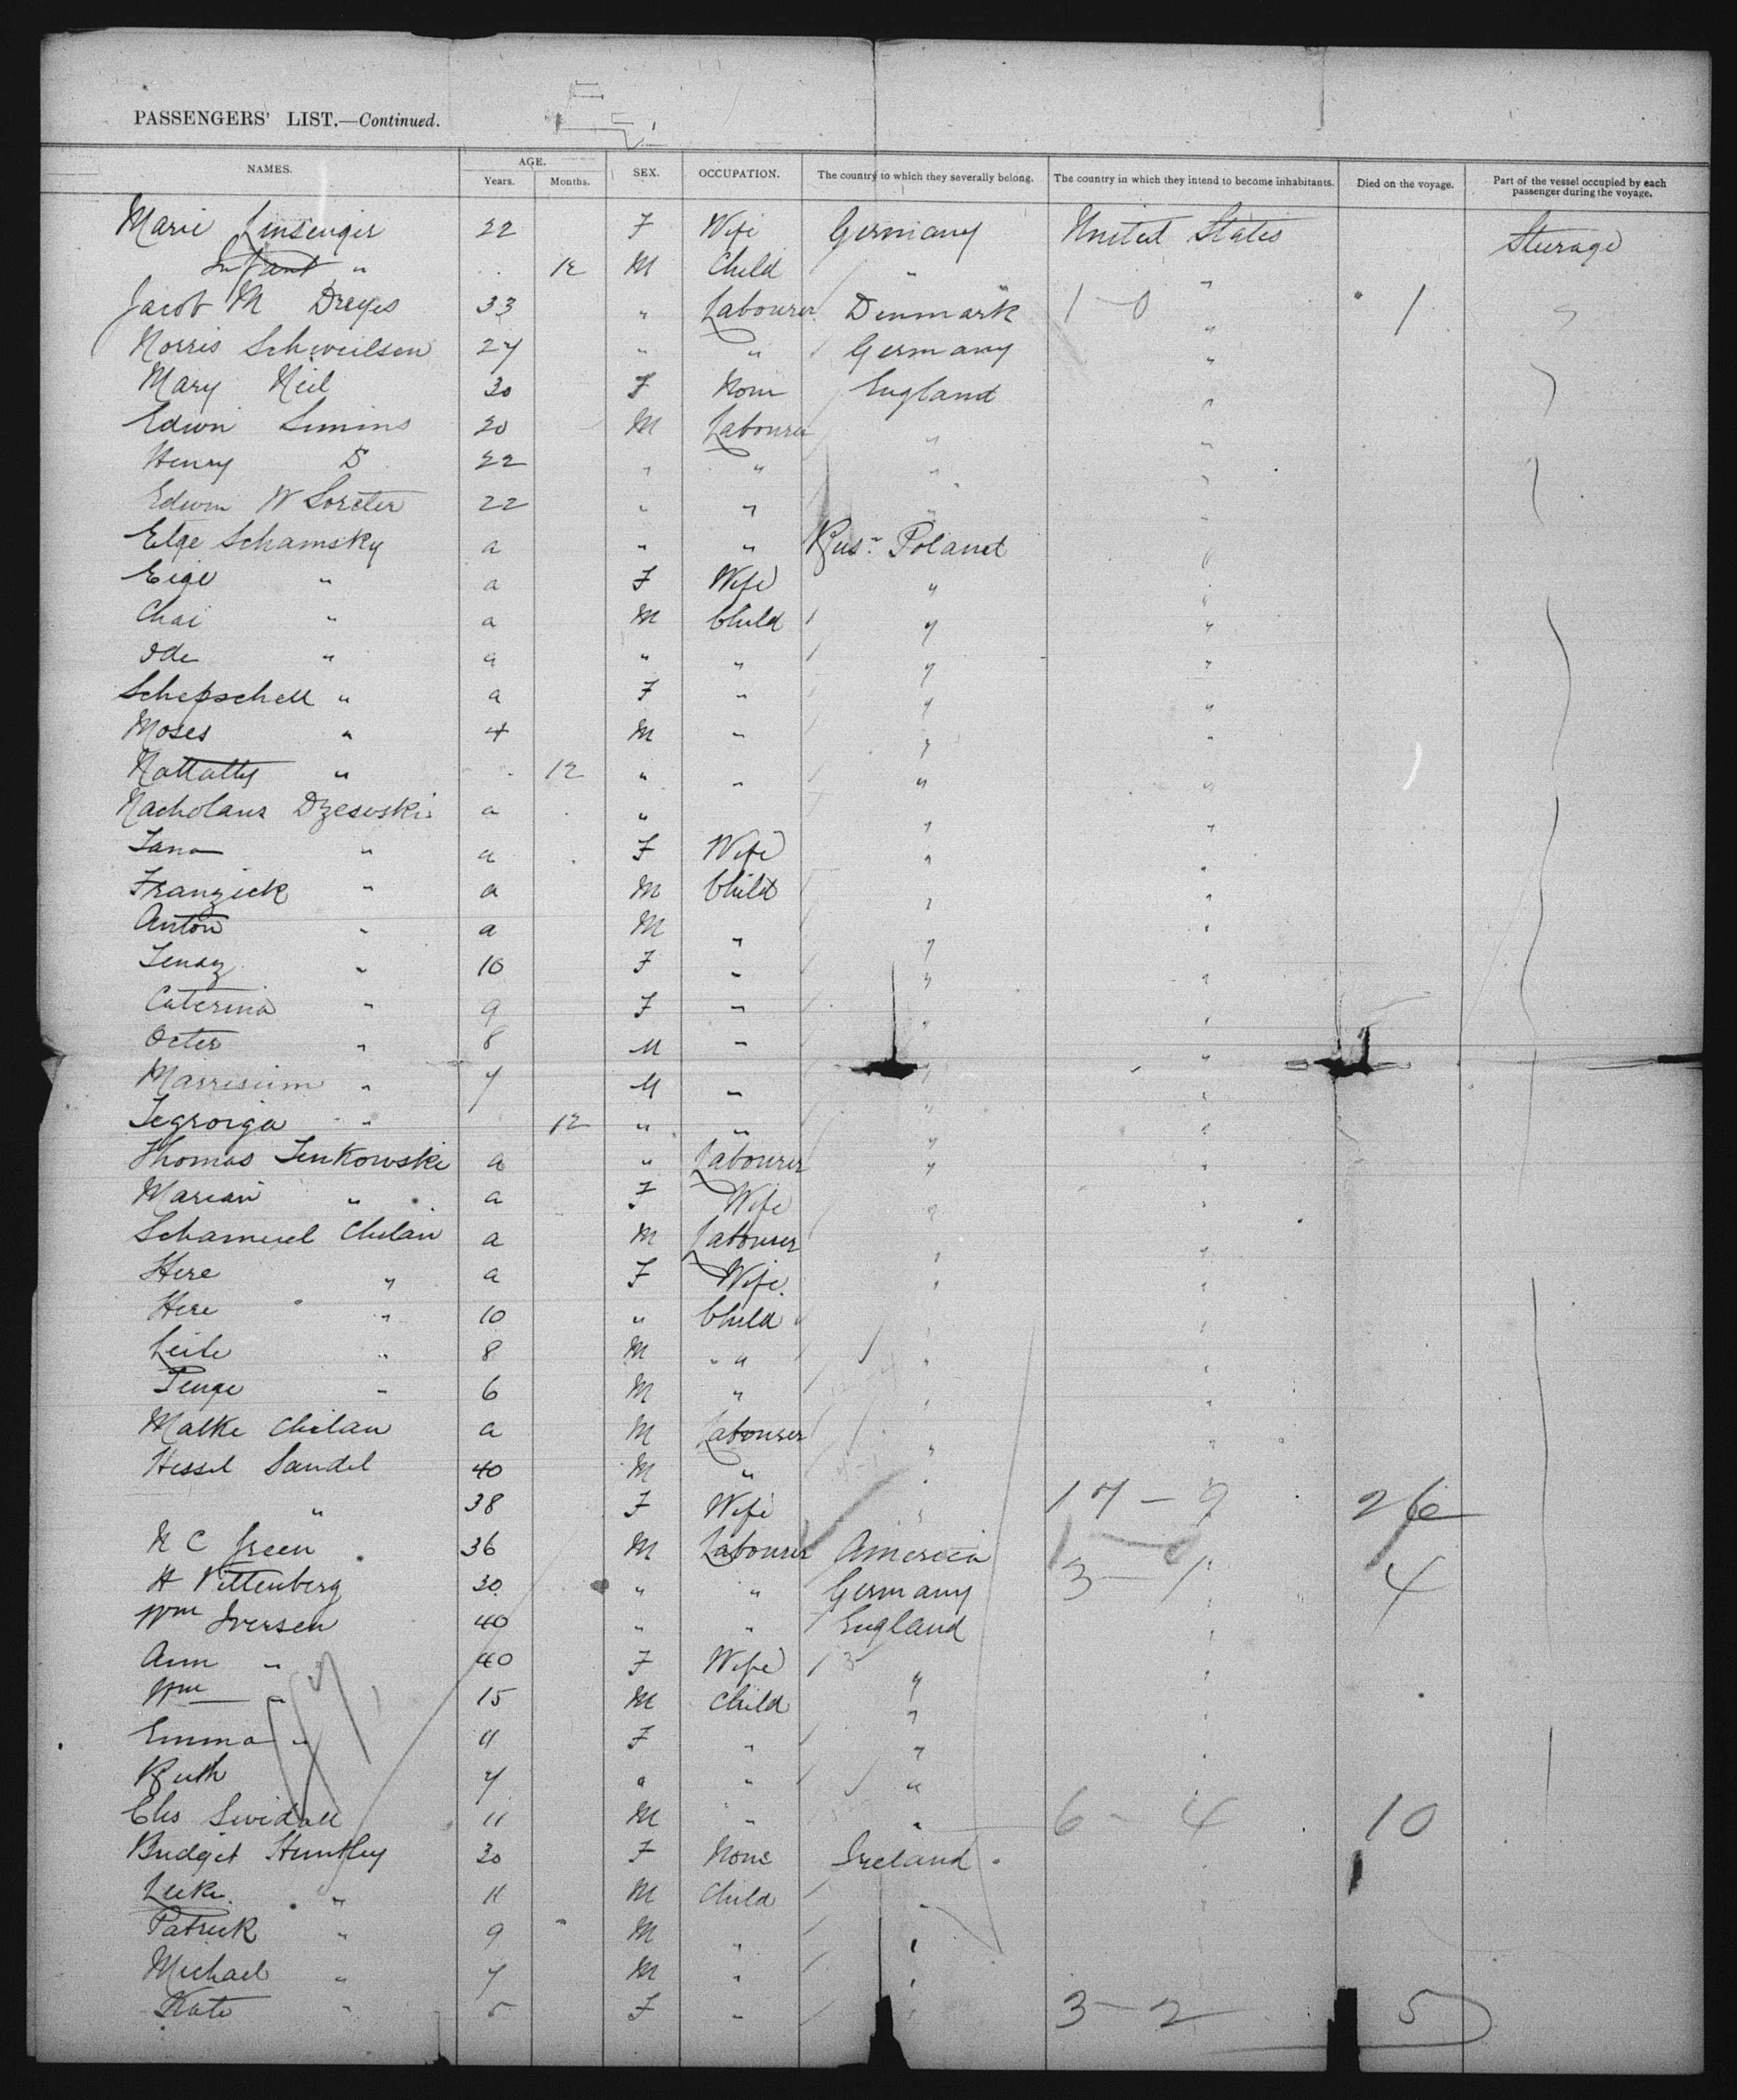 PASSENGERS' LIST.—Continued.
NAMES. AGE. Years. Months. SEX. OCCUPATION. The country to which they severally belong. The country in which they intend to become inhabitants. Died on the voyage. Part of the vessel occupied by each passenger during the voyage.
Marie Linsenger 22 F Wife Germany United States Steerage
Infant " 12 M Child " "
Jacob M Dreyes 33 " Labourer Denmark 1 - 0 " 1
Norris Schweilsen 27 " " Germany "
Mary Neil 30 F None England "
Edwin Simins 20 M Labourer " "
Henry S 22 " " " "
Edwin W Sorcter 22 " " " "
Elge Schamsky a " " Rus. Poland "
Eige " a F Wife " "
Chai " a M Child " "
Ide " a " " " "
Schepschell " a F " " "
Moses " 4 M " " "
Nattatty " 12 " " " "
Nacholaus Dzesoski a " " "
Jana " a F Wife " "
Franzick " a M Child " "
Anton " a M " " "
Jenaz " 10 F " " "
Caterina " 9 F " " "
Octer " 8 M " " "
Marrisium " 7 M " " "
Jegroiga " 12 " " " "
Thomas Jenkowski a " Labourer " "
Marian " a F Wife " "
Schamuel Chilan a M Labourer " "
Here " a F Wife " "
Here " 10 " Child " "
Leibe " 8 M " " "
Penge " 6 M " " "
Malke Chilan a M Labourer " "
Hessel Sandel 40 M " " "
" 38 F Wife " 17 - 9 26
N C Green 36 M Labourer America 1 - 0 1
H Vittenberg 30 " " Germany 3 - 1 " 4
Wm Iversen 40 " " England "
Ann " 40 F Wife " "
Wm " 15 M Child " "
Emma " 11 F " " "
Ruth 7 " " "
Chs Swidall 11 M " " 6 - 4 10
Bridget Huntley 30 F None Ireland "
Luke " 11 M Child " "
Patrick " 9 M " "
Michael " 7 M " "
Kate " 5 F " " 3 - 2 5